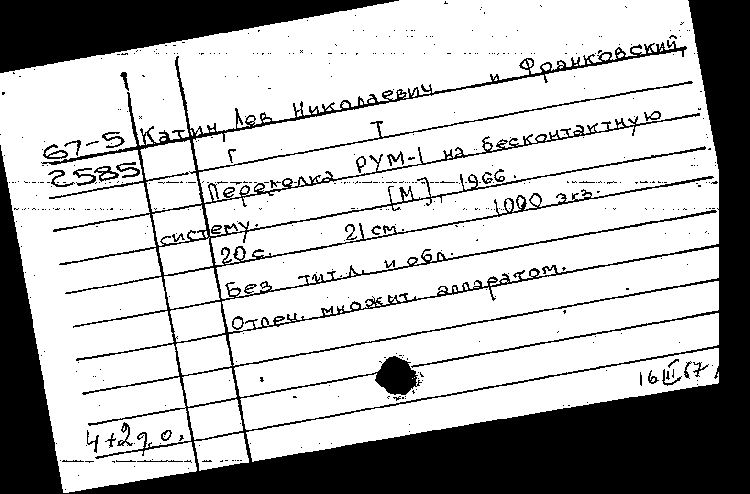 67-5 Катин, Лев Николаевич и Франковский,
2585 Г Т
Переделка РУМ-1 на бесконтактную
систему. [М], 1966.
20 с. 21 см. 1000 экз.
Без тит. л. и обл.
Отпеч. множит. аппаратом.
16 III 67
4+2 д.о.